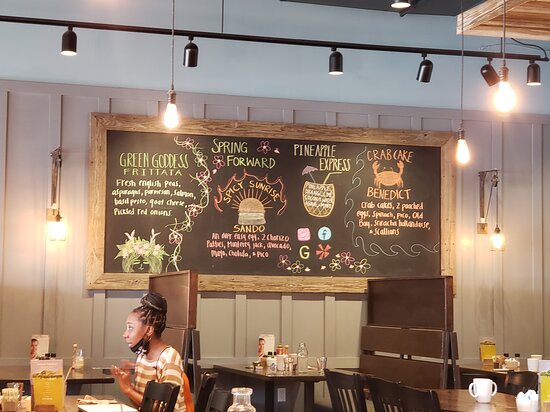 GREEN GODDESS
FRITTATA
Fresh english peas,
asparagus, parmesan, Salmon,
basil pesto, goat cheese,
Pickled red onions
SPRING
FORWARD
SPICY SUNRISE
SANDO
An over easy egg, 2 Chorizo
Patties, Monterey jack, avocado,
Mayo, Cholula, & Pico
PINEAPPLE
EXPRESS
f
G
CRAB CAKE
BENEDICT
Crab cakes, 2 poached
eggs, Spinach, Pico, Old
Bay, Sriracha hollandaise, &
Scallions